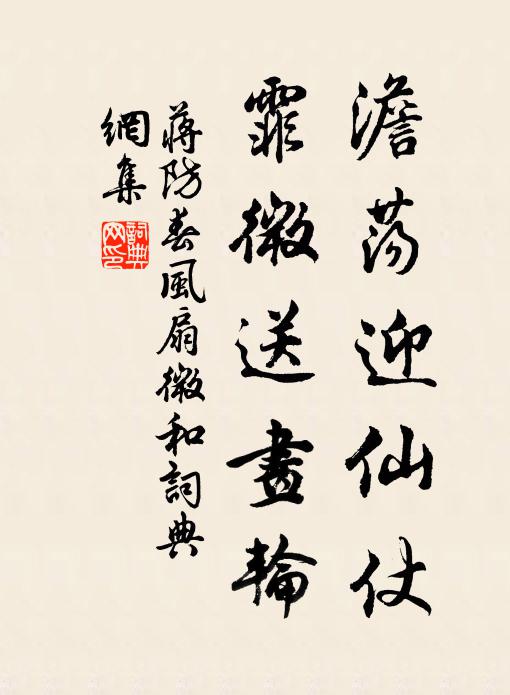 澹蕩迎仙仗
霏微送晝輪
蔣防春風扇微和詞典
網集
詞典
网印